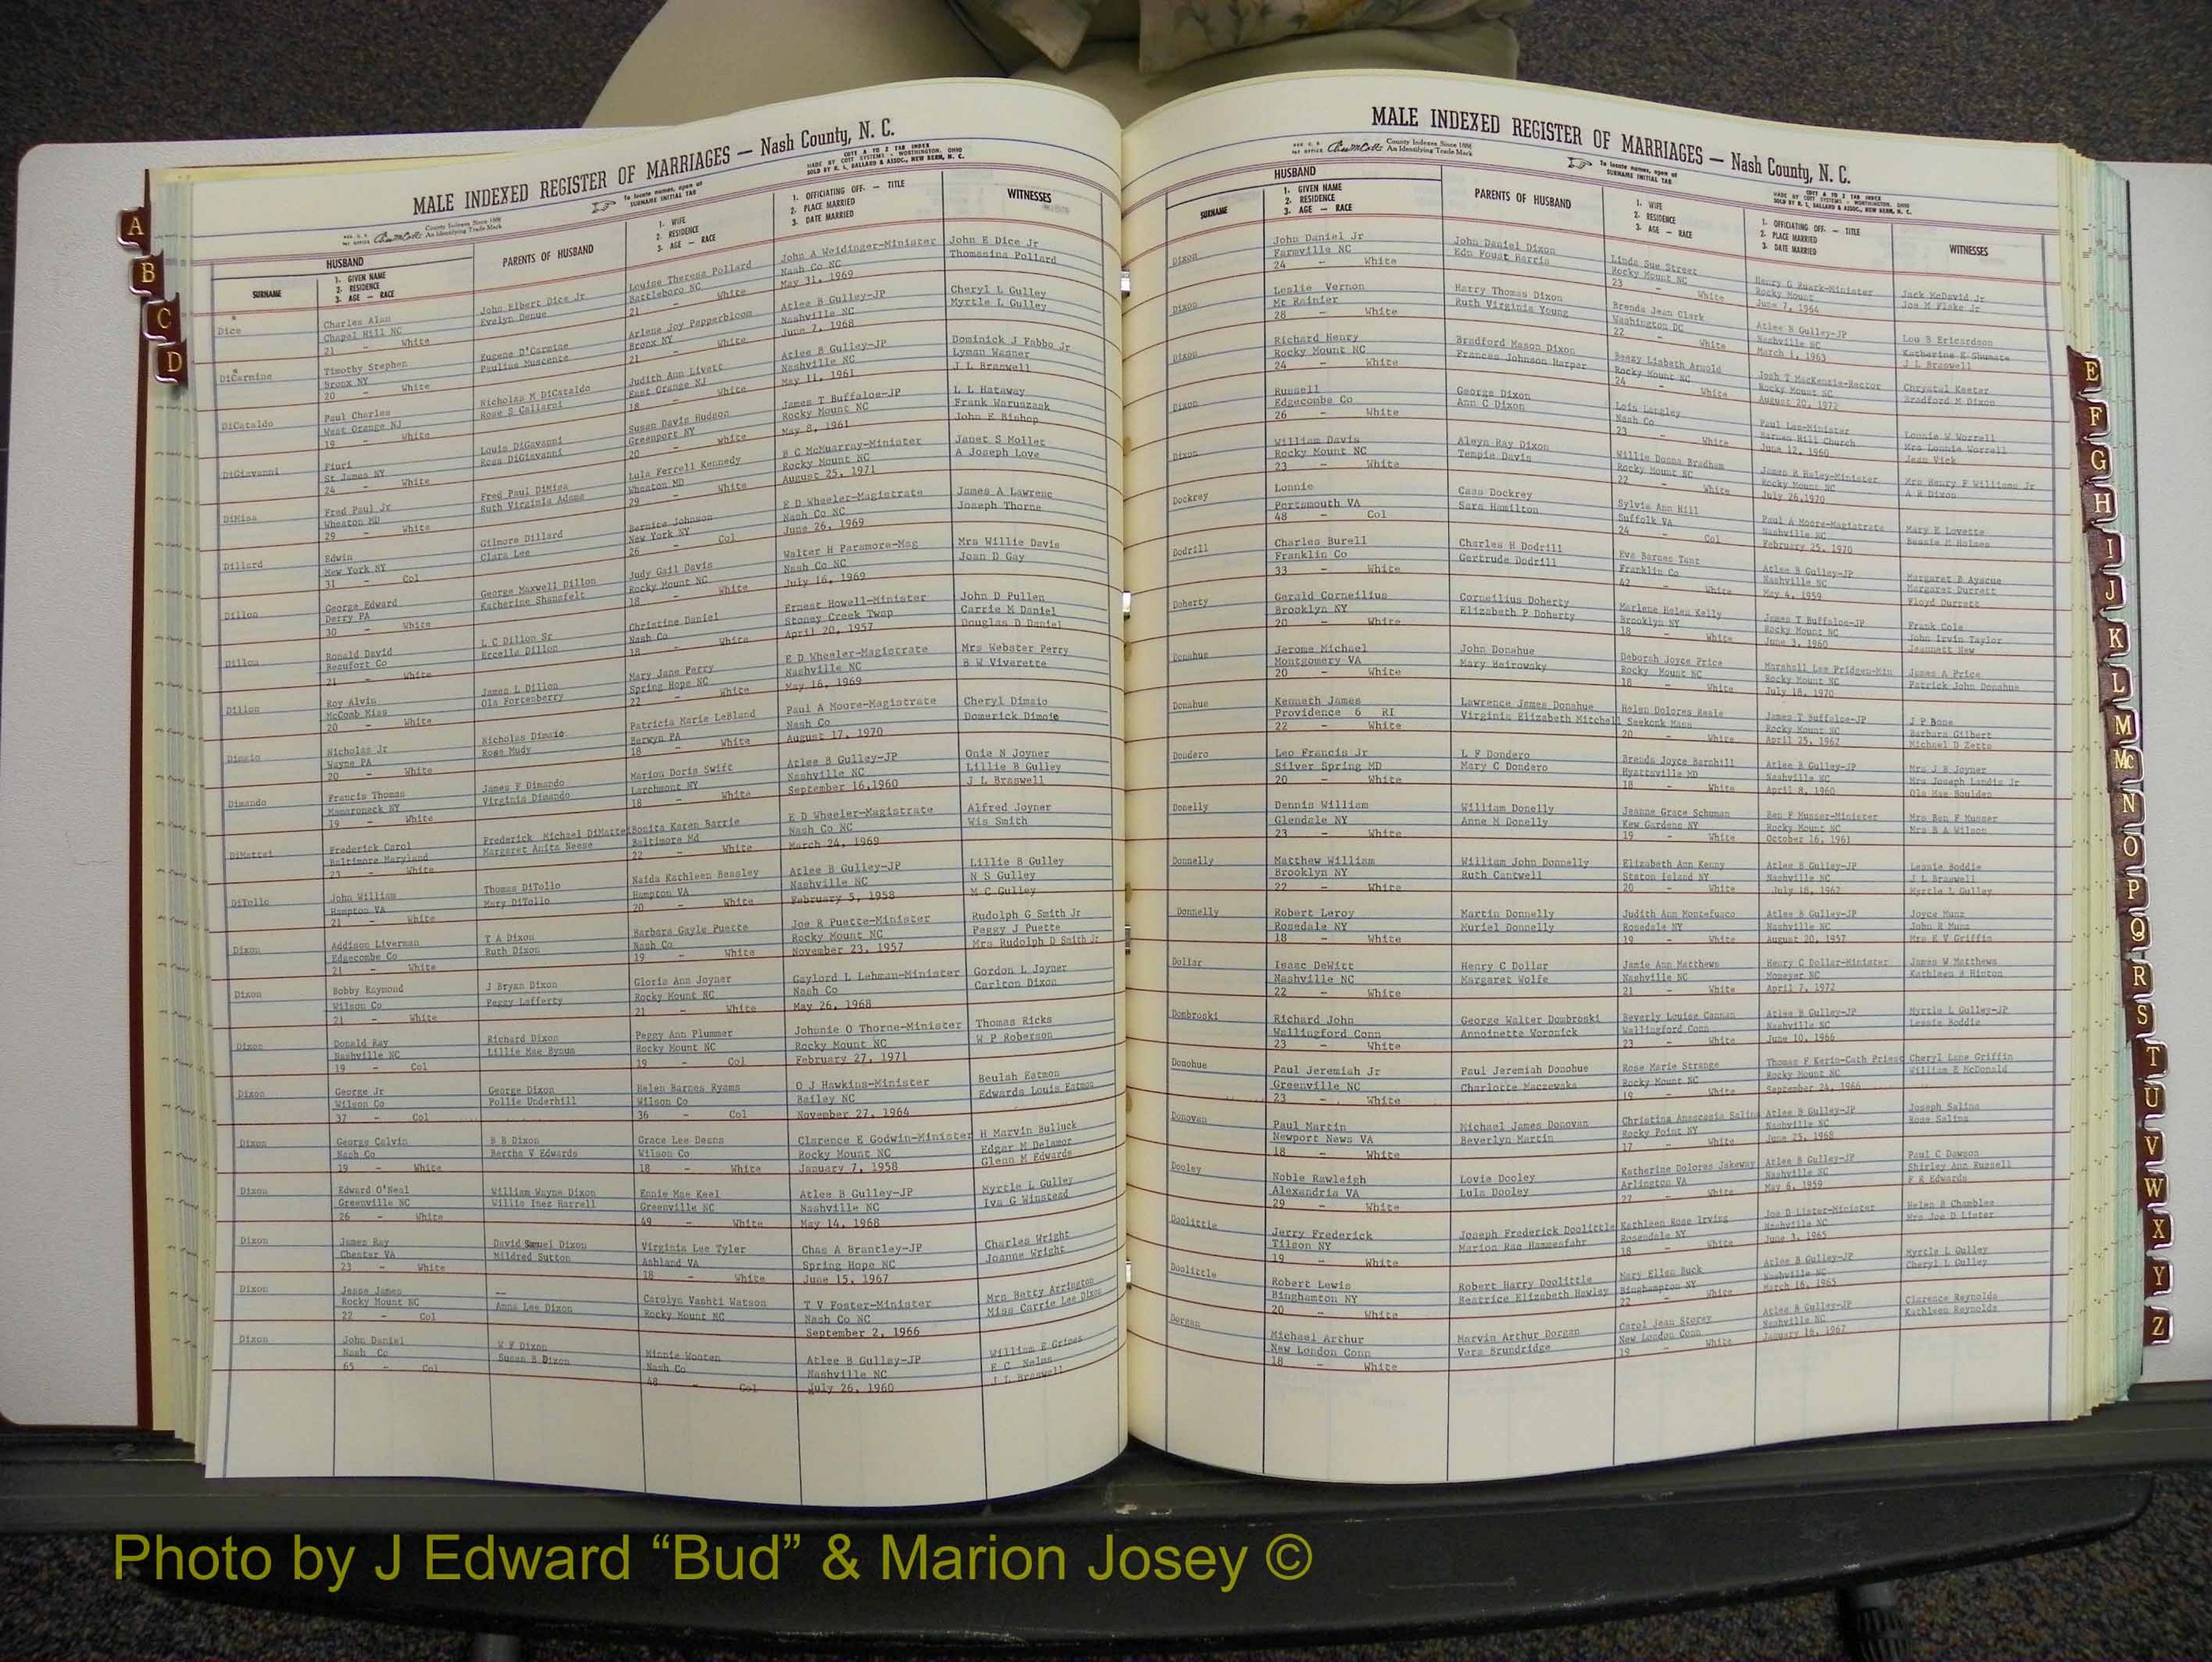 MALE INDEXED REGISTER OF MARRIAGES — Nash County, N. C.
County Indexes Since 1888
An Identifying Trade Mark
To locate names, open at
SURNAME INITIAL TAB
COTT A TO Z TAB INDEX
MADE BY COTT SYSTEMS - WORTHINGTON, OHIO
SOLD BY R. L. BALLARD & ASSOC., NEW BERN, N. C.
HUSBAND
SURNAME
1. GIVEN NAME
2. RESIDENCE
3. AGE — RACE
PARENTS OF HUSBAND
1. WIFE
2. RESIDENCE
3. AGE — RACE
1. OFFICIATING OFF. — TITLE
2. PLACE MARRIED
3. DATE MARRIED
WITNESSES
Dice Charles Alan John Elbert Dice Jr Louise Theresa Pollard John A Weidinger-Minister John E Dice Jr
Chapel Hill NC Evelyn Denue Battleboro NC Nash Co NC Thomasina Pollard
21 - White 21 - White May 31, 1969
DiCarmine Timothy Stephen Eugene D'Carmine Arlene Joy Pepperbloom Atlee B Gulley-JP Cheryl L Gulley
Bronx NY Pauline Muscente Bronx NY Nashville NC Myrtle L Gulley
20 - White 21 - White June 7, 1968
DiCataldo Paul Charles Nicholas M DiCataldo Judith Ann Livett Atlee B Gulley-JP Dominick J Fabbo Jr
West Orange NJ Rose S Callarni East Orange NJ Nashville NC Lyman Wagner
19 - White 18 - White May 11, 1961 J L Braswell
DiGiavanni Fiuri Louis DiGiavanni Susan Davis Hudson James T Buffaloe-JP L L Hataway
St James NY Rosa DiGiavanni Greenport NY Rocky Mount NC Frank Waruszask
24 - White 20 - White May 8, 1961 John E Bishop
DiMisa Fred Paul Jr Fred Paul DiMisa Lula Ferrell Kennedy B C McMurray-Minister Janet S Mollet
Wheaton MD Ruth Virginia Adams Wheaton MD Rocky Mount NC A Joseph Love
29 - White 29 - White August 25, 1971
Dillard Edwin Gilmore Dillard Bernice Johnson E D Wheeler-Magistrate James A Lawrenc
New York NY Clara Lee New York NY Nash Co NC Joseph Thorne
31 - Col 26 - Col June 26, 1969
Dillon George Edward George Maxwell Dillon Judy Gail Davis Walter H Paramore-Mag Mrs Willie Davis
Derry PA Katherine Shansfelt Rocky Mount NC Nash Co NC Joan D Gay
30 - White 18 - White July 16, 1969
Dillon Ronald David L C Dillon Sr Christine Daniel Ernest Howell-Minister John D Pullen
Beaufort Co Ercelle Dillon Nash Co Stoney Creek Twsp Carrie M Daniel
21 - White 18 - White April 20, 1957 Douglas D Daniel
Dillon Roy Alvin James L Dillon Mary Jane Perry E D Wheeler-Magistrate Mrs Webster Perry
McComb Miss Ola Fortenberry Spring Hope NC Nashville NC B W Viverette
20 - White 22 - White May 16, 1969
Dimaio Nicholas Jr Nicholas Dimaio Patricia Marie LeBland Paul A Moore-Magistrate Cheryl Dimaio
Wayne PA Rose Mudy Berwyn PA Nash Co Domerick Dimaio
20 - White 18 - White August 17, 1970
Dimando Francis Thomas James F Dimando Marion Doris Swift Atlee B Gulley-JP Onie N Joyner
Mamaroneck NY Virginia Dimando Larchmont NY Nashville NC Lillie B Gulley
19 - White 18 - White September 16,1960 J L Braswell
DiMattei Frederick Carol Frederick Michael DiMattei Bonita Karen Barrie E D Wheeler-Magistrate Alfred Joyner
Baltimore Maryland Margaret Anita Neese Baltimore Md Nash Co NC Wis Smith
23 - White 22 - White March 24, 1969
DiTollo John William Thomas DiTollo Naida Kathleen Beasley Atlee B Gulley-JP Lillie B Gulley
Hampton VA Mary DiTollo Hampton VA Nashville NC N S Gulley
21 - White 20 - White February 5, 1958 M C Gulley
Dixon Addison Liverman T A Dixon Barbara Gayle Puette Joe R Puette-Minister Rudolph G Smith Jr
Edgecombe Co Ruth Dixon Nash Co Rocky Mount NC Peggy J Puette
21 - White 19 - White November 23, 1957 Mrs Rudolph D Smith Jr
Dixon Bobby Raymond J Bryan Dixon Gloria Ann Joyner Gaylord L Lehman-Minister Gordon L Joyner
Wilson Co Peggy Lafferty Rocky Mount NC Nash Co Carlton Dixon
21 - White 21 - White May 26, 1968
Dixon Donald Ray Richard Dixon Peggy Ann Plummer Johnnie O Thorne-Minister Thomas Ricks
Nashville NC Lillie Mae Bynum Rocky Mount NC Rocky Mount NC W P Roberson
19 - Col 19 - Col February 27, 1971
Dixon George Jr George Dixon Helen Barnes Ryams O J Hawkins-Minister Beulah Eatmon
Wilson Co Pollie Underhill Wilson Co Bailey NC Edwards Louis Eatmon
37 - Col 36 - Col November 27, 1964
Dixon George Calvin B B Dixon Grace Lee Deans Clarence E Godwin-Minister H Marvin Bulluck
Nash Co Bertha V Edwards Wilson Co Rocky Mount NC Edgar M Delamor
19 - White 18 - White January 7, 1958 Glenn M Edwards
Dixon Edward O'Neal William Wayne Dixon Ennie Mae Keel Atlee B Gulley-JP Myrtle L Gulley
Greenville NC Willie Inez Harrell Greenville NC Nashville NC Iva G Winstead
26 - White 49 - White May 14, 1968
Dixon James Ray David Samuel Dixon Virginia Lee Tyler Chas A Brantley-JP Charles Wright
Chester VA Mildred Sutton Ashland VA Spring Hope NC Joanne Wright
23 - White 18 - White June 15, 1967
Dixon Jesse James — Carolyn Vashti Watson T V Foster-Minister Mrs Betty Arrington
Rocky Mount NC Anna Lee Dixon Rocky Mount NC Nash Co NC Miss Carrie Lee Dixon
22 - Col September 2, 1966
Dixon John Daniel W F Dixon Minnie Wooten Atlee B Gulley-JP William E Grimes
Nash Co Susan B Dixon Nash Co Nashville NC E C Nelms
65 - Col 48 - Col July 26, 1960 J L Braswell
MALE INDEXED REGISTER OF MARRIAGES — Nash County, N. C.
County Indexes Since 1888
An Identifying Trade Mark
To locate names, open at
SURNAME INITIAL TAB
COTT A TO Z TAB INDEX
MADE BY COTT SYSTEMS - WORTHINGTON, OHIO
SOLD BY R. L. BALLARD & ASSOC., NEW BERN, N. C.
HUSBAND
SURNAME
1. GIVEN NAME
2. RESIDENCE
3. AGE — RACE
PARENTS OF HUSBAND
1. WIFE
2. RESIDENCE
3. AGE — RACE
1. OFFICIATING OFF. — TITLE
2. PLACE MARRIED
3. DATE MARRIED
WITNESSES
Dixon John Daniel Jr John Daniel Dixon Linda Sue Street Henry G Ruark-Minister Jack McDavid Jr
Farmville NC Edn Foust Harris Rocky Mount NC Rocky Mount Jos M Fiske Jr
24 - White 23 - White June 7, 1964
Dixon Leslie Vernon Harry Thomas Dixon Brenda Jean Clark Atlee B Gulley-JP Lou B Ericardson
Mt Rainier Ruth Virginia Young Washington DC Nashville NC Katherine E Shumate
28 - White 22 - White March 1, 1963 J L Braswell
Dixon Richard Henry Bradford Mason Dixon Benzy Lisbeth Arnold Josh T MacKenzie-Rector Chrystal Keeter
Rocky Mount NC Frances Johnson Harper Rocky Mount NC Rocky Mount NC Bradford M Dixon
24 - White 24 - White August 20, 1972
Dixon Russell George Dixon Lois Langley Paul Lee-Minister Lonnie W Worrell
Edgecombe Co Ann C Dixon Nash Co Barnes Hill Church Mrs Lonnie Worrell
26 - White 23 - White June 12, 1960 Jean Vick
Dixon William Davis Aleyn Ray Dixon Willie Donna Bradham James R Haley-Minister Mrs Henry F Williams Jr
Rocky Mount NC Tempie Davis Rocky Mount NC Rocky Mount NC A R Dixon
23 - White 22 - White July 26,1970
Dockrey Lonnie Cass Dockrey Sylvia Ann Hill Paul A Moore-Magistrate Mary E Lovette
Portsmouth VA Sara Hamilton Suffolk VA Nashville NC Bessie M Holmes
48 - Col 24 - Col February 25, 1970
Dodrill Charles Burell Charles H Dodrill Eva Barnes Tant Atlee B Gulley-JP Margaret B Ayscue
Franklin Co Gertrude Dodrill Franklin Co Nashville NC Margaret Durrett
33 - White 42 - White May 4, 1959 Floyd Durrett
Doherty Gerald Corneilius Corneilius Doherty Marlene Helen Kelly James T Buffaloe-JP Frank Cole
Brooklyn NY Elizabeth P Doherty Brooklyn NY Rocky Mount NC John Irvin Taylor
20 - White 18 - White June 3, 1960 Jeannett New
Donahue Jerome Michael John Donahue Deborah Joyce Price Marshall Lee Pridgen-Min James A Price
Montgomery VA Mary Beirowsky Rocky Mount NC Rocky Mount NC Patrick John Donahue
20 - White 18 - White July 18, 1970
Donahue Kenneth James Lawrence James Donahue Helen Dolores Reale James T Buffaloe-JP J P Bone
Providence 6 RI Virginia Elizabeth Mitchell Seekonk Mass Rocky Mount NC Barbara Gilbert
22 - White 20 - White April 25, 1962 Michael D Zetts
Dondero Leo Francis Jr L F Dondero Brenda Joyce Barnhill Atlee B Gulley-JP Mrs J B Joyner
Silver Spring MD Mary C Dondero Hyattsville MD Nashville NC Mrs Joseph Landis Jr
20 - White 18 - White April 8, 1960 Ola Mae Boulden
Donelly Dennis William William Donelly Jeanne Grace Schuman Ben F Musser-Minister Mrs Ben F Musser
Glendale NY Anne M Donelly Kew Gardens NY Rocky Mount NC Mrs B A Wilson
23 - White 19 - White October 16, 1961
Donnelly Matthew William William John Donnelly Elizabeth Ann Kenny Atlee B Gulley-JP Lessie Boddie
Brooklyn NY Ruth Cantwell Staton Island NY Nashville NC J L Braswell
22 - White 20 - White July 18, 1962 Myrtle L Gulley
Donnelly Robert Leroy Martin Donnelly Judith Ann Montefusco Atlee B Gulley-JP Joyce Munz
Rosedale NY Muriel Donnelly Rosedale NY Nashville NC John R Munz
18 - White 19 - White August 20, 1957 Mrs E V Griffin
Dollar Isaac DeWitt Henry C Dollar Jamie Ann Matthews Henry C Dollar-Minister James W Matthews
Nashville NC Margaret Wolfe Nashville NC Momeyer NC Kathleen B Hinton
22 - White 21 - White April 7, 1972
Dombroski Richard John George Walter Dombroski Beverly Louise Cannan Atlee B Gulley-JP Myrtle L Gulley
Wallingford Conn Annoinette Woronick Wallingford Conn Nashville NC Lessie Boddie
23 - White 23 - White June 10, 1966
Donohue Paul Jeremiah Jr Paul Jeremiah Donohue Rose Marie Strange Thomas F Kerin-Cath Priest Cheryl Lane Griffin
Greenville NC Charlotte Maczewska Rocky Mount NC Rocky Mount NC William E McDonald
23 - White 19 - White September 24, 1966
Donovan Paul Martin Michael James Donovan Christina Anastasia Salina Atlee B Gulley-JP Joseph Salina
Newport News VA Beverlyn Martin Rocky Point NY Nashville NC Rose Salina
18 - White 17 - White June 25, 1968
Dooley Noble Rawleigh Lovie Dooley Katherine Dolores Jakeway Atlee B Gulley-JP Paul C Dawson
Alexandria VA Lula Dooley Arlington VA Nashville NC Shirley Ann Russell
29 - White 27 - White May 6, 1959 F R Edwards
Doolittle Jerry Frederick Joseph Frederick Doolittle Kathleen Rose Irving Joe D Lister-Minister Helen B Chamblee
Tilson NY Marion Rae Hammesfahr Rosendale NY Nashville NC Mrs Joe D Lister
19 - White 18 - White June 3, 1965
Doolittle Robert Lewis Robert Harry Doolittle Mary Ellen Buck Atlee B Gulley-JP Myrtle L Gulley
Binghamton NY Beatrice Elizabeth Hawley Binghampton NY Nashville NC Cheryl L Gulley
20 - White 22 - White March 16, 1965
Dorgan Michael Arthur Marvin Arthur Dorgan Carol Jean Storey Atlee B Gulley-JP Clarence Reynolds
New London Conn Vera Brundridge New London Conn Nashville NC Kathleen Reynolds
18 - White 19 - White January 16, 1967
A
B
C
D
E
F
G
H
I
J
K
L
M
Mc
N
O
P
Q
R
S
T
U
V
W
X
Y
Z
Photo by J Edward “Bud” & Marion Josey ©